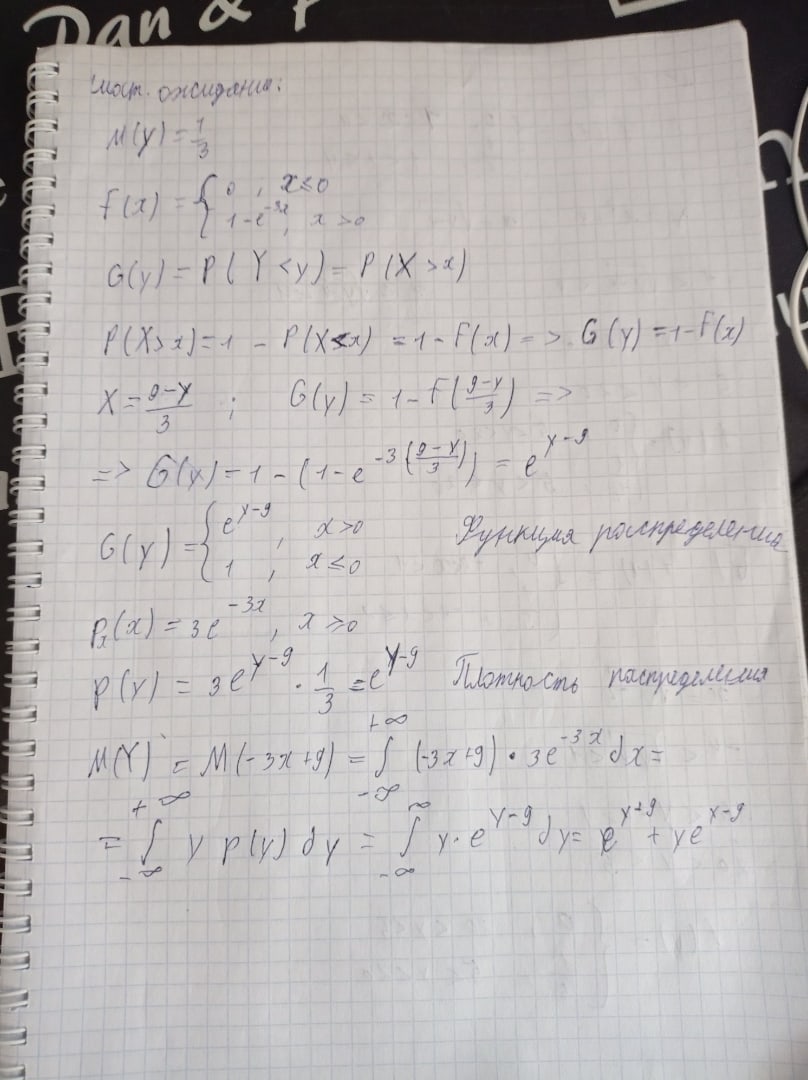 Dan & P
мат. ожидание:
M(y) = 1/3
F(x) = { 0, x ≤ 0
1-e^{-3x}, x > 0
G(y) = P(Y < y) = P(X > x)
P(X > x) = 1 - P(X < x) = 1 - F(x) => G(y) = 1 - F(x)
X = (9-y)/3 ; G(y) = 1 - F((9-y)/3) =>
=> G(y) = 1 - (1 - e^{-3((9-y)/3)}) = e^{y-9}
G(y) = { e^{y-9}, x > 0 Функция распределения
1, x ≤ 0
P_x(x) = 3e^{-3x}, x ≥ 0
P(y) = 3e^{y-9} · 1/3 = e^{y-9} Плотность распределения
M(Y) = M(-3x+9) = ∫_{-∞}^{+∞} (-3x+9) · 3e^{-3x} dx =
= ∫_{-∞}^{+∞} y p(y) dy = ∫_{-∞}^{∞} y · e^{y-9} dy = e^{y+9} + ye^{y-9}